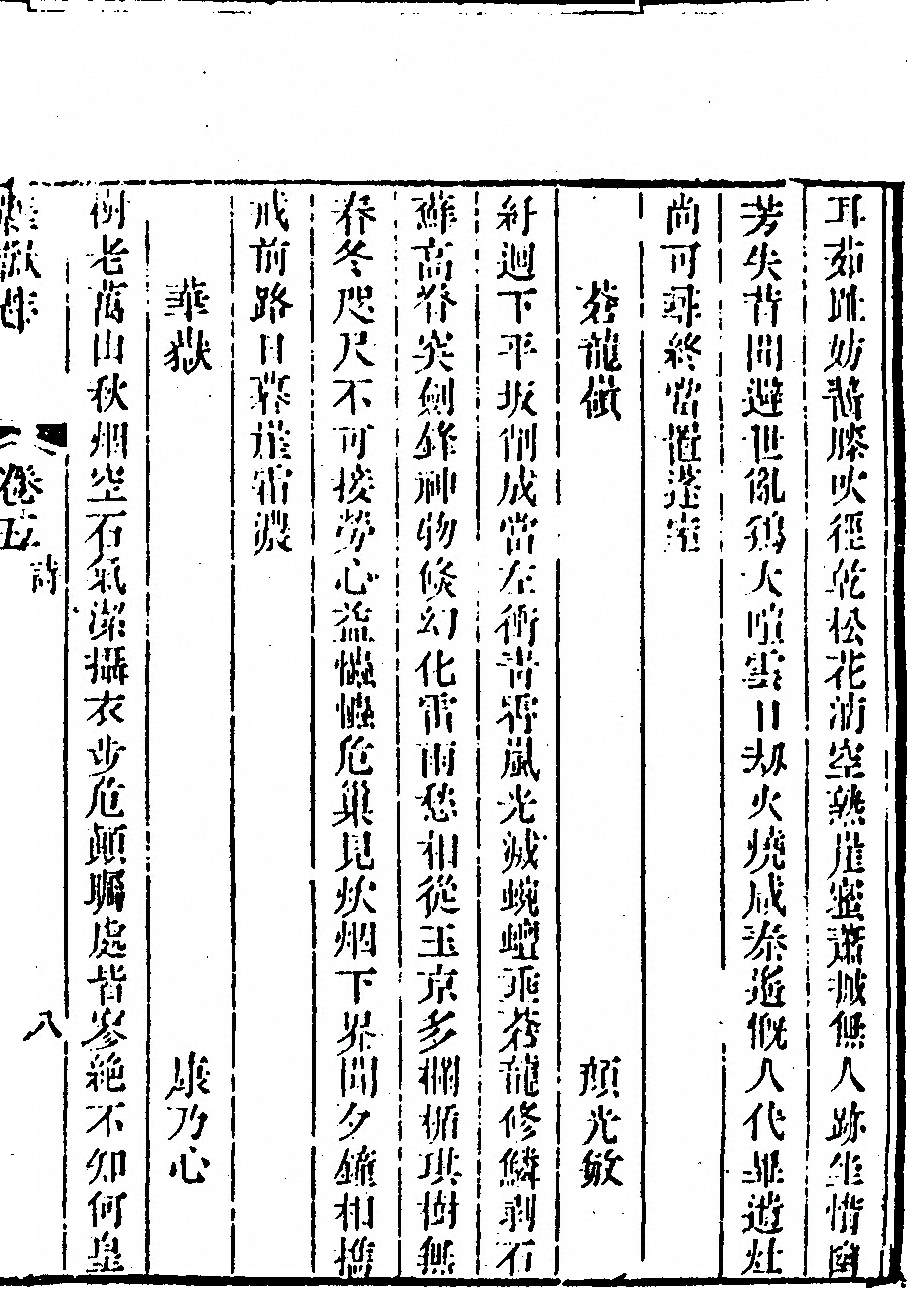 耳茹訛妨醫滕吹徑乾松花滴空熟崖蜜蕭摵無人跡坐惜幽
芳失昔聞避世亂鷄犬喧雲日刼火燒咸秦逃慨人代畢遊灶
尚可尋終當置蓬室
蒼龍嶺　顔光敏
紆迴下平坂削成當左衝青霄嵐光滅蜿蟺乖蒼龍修鱗剥石
蘚高脊突劍鋒神物倏幻化雷雨愁相從玉京多欄楯琪樹無
春冬咫尺不可接勞心益懺懺危巢見炊烟下界聞夕鐘相携
戒前路日暮崖霜濃
華嶽　康乃心
樹老萬山秋烟空石氣潔攝衣步危顛矚處皆寥絶不知何皇
卷五　詩　八